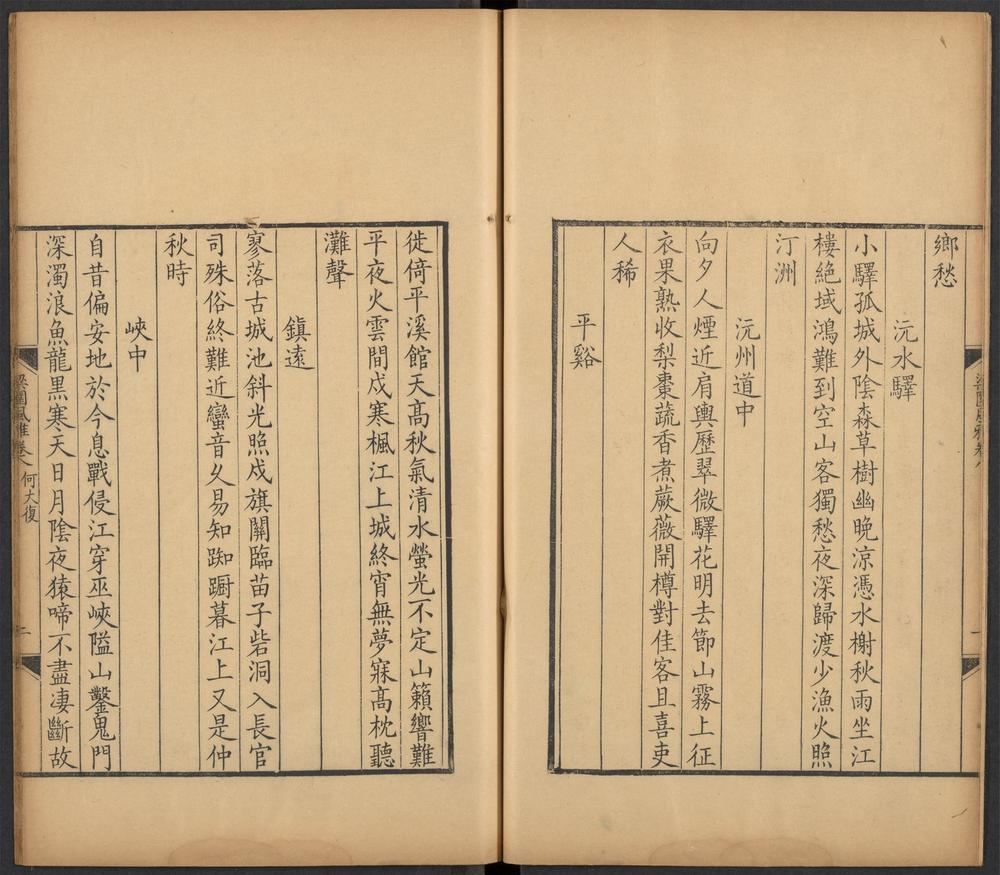 鄉愁
沅水驛
小驛孤城外陰森草樹幽晚涼憑水榭秋雨坐江
樓絕域鴻難到空山客獨愁夜深歸渡少漁火照
汀洲
沅州道中
向夕人煙近肩輿歷翠微驛花明去節山霧上征
衣果熟收梨棗蔬香煮蕨薇開樽對佳客且喜吏
人稀
平谿
徙倚平溪館天高秋氣清水螢光不定山籟響難
平夜火雲間戍寒楓江上城終宵無夢寐高枕聽
灘聲
鎮遠
寥落古城池斜光照戍旗關臨苗子砦洞入長官
司殊俗終難近蠻音久易知踟躕暮江上又是仲
秋時
峽中
自昔偏安地於今息戰侵江穿巫峽隘山鑿鬼門
深濁浪魚龍黑寒天日月陰夜猿啼不盡凄斷故
梁園風雅卷八 何大復 二